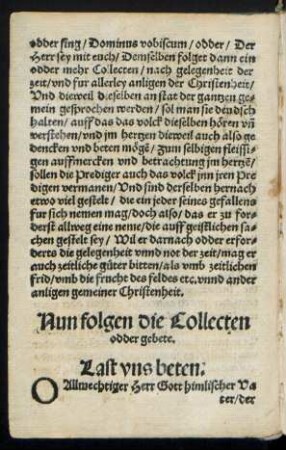 odder sing/ Dominus vobiscum/ odder/ Der
Herr sey mit euch/ Demselben folget dann ein
odder mehr Collecten/ nach gelegenheit der
zeit/ vnd fur allerley anligen der Christenheit/
Vnd dieweil dieselben an stat der gantzen ge-
mein gesprochen werden/ sol man sie deudsch
halten/ auff das das volck dieselben hören vñ
verstehen/ vnd jm hertzen dieweil auch also ge
dencken vnd beten mögē/ Zum selbigen fleissi-
gen auffmercken vnd betrachtung jm hertzē/
sollen die Prediger auch das volck jnn jren Pre
digen vermanen/ Vnd sind derselben hernach
etwo viel gestelt/ die ein jeder seines gefallens
fur sich nemen mag/ doch also/ das er zu for-
derst allweg eine neme/ die auff geistlichen sa-
chen gestelt sey/ Wil er darnach odder erfor-
derts die gelegenheit vnnd not der zeit/ mag er
auch zeitliche güter bitten/ als vmb zeitlichen
frid/ vmb die frucht des feldes etc. vnnd ander
anligen gemeiner Christenheit.
Nun folgen die Collecten
odder gebete.
Last vns beten:
O Allmechtiger Herr Gott himlischer Va
ter/ der